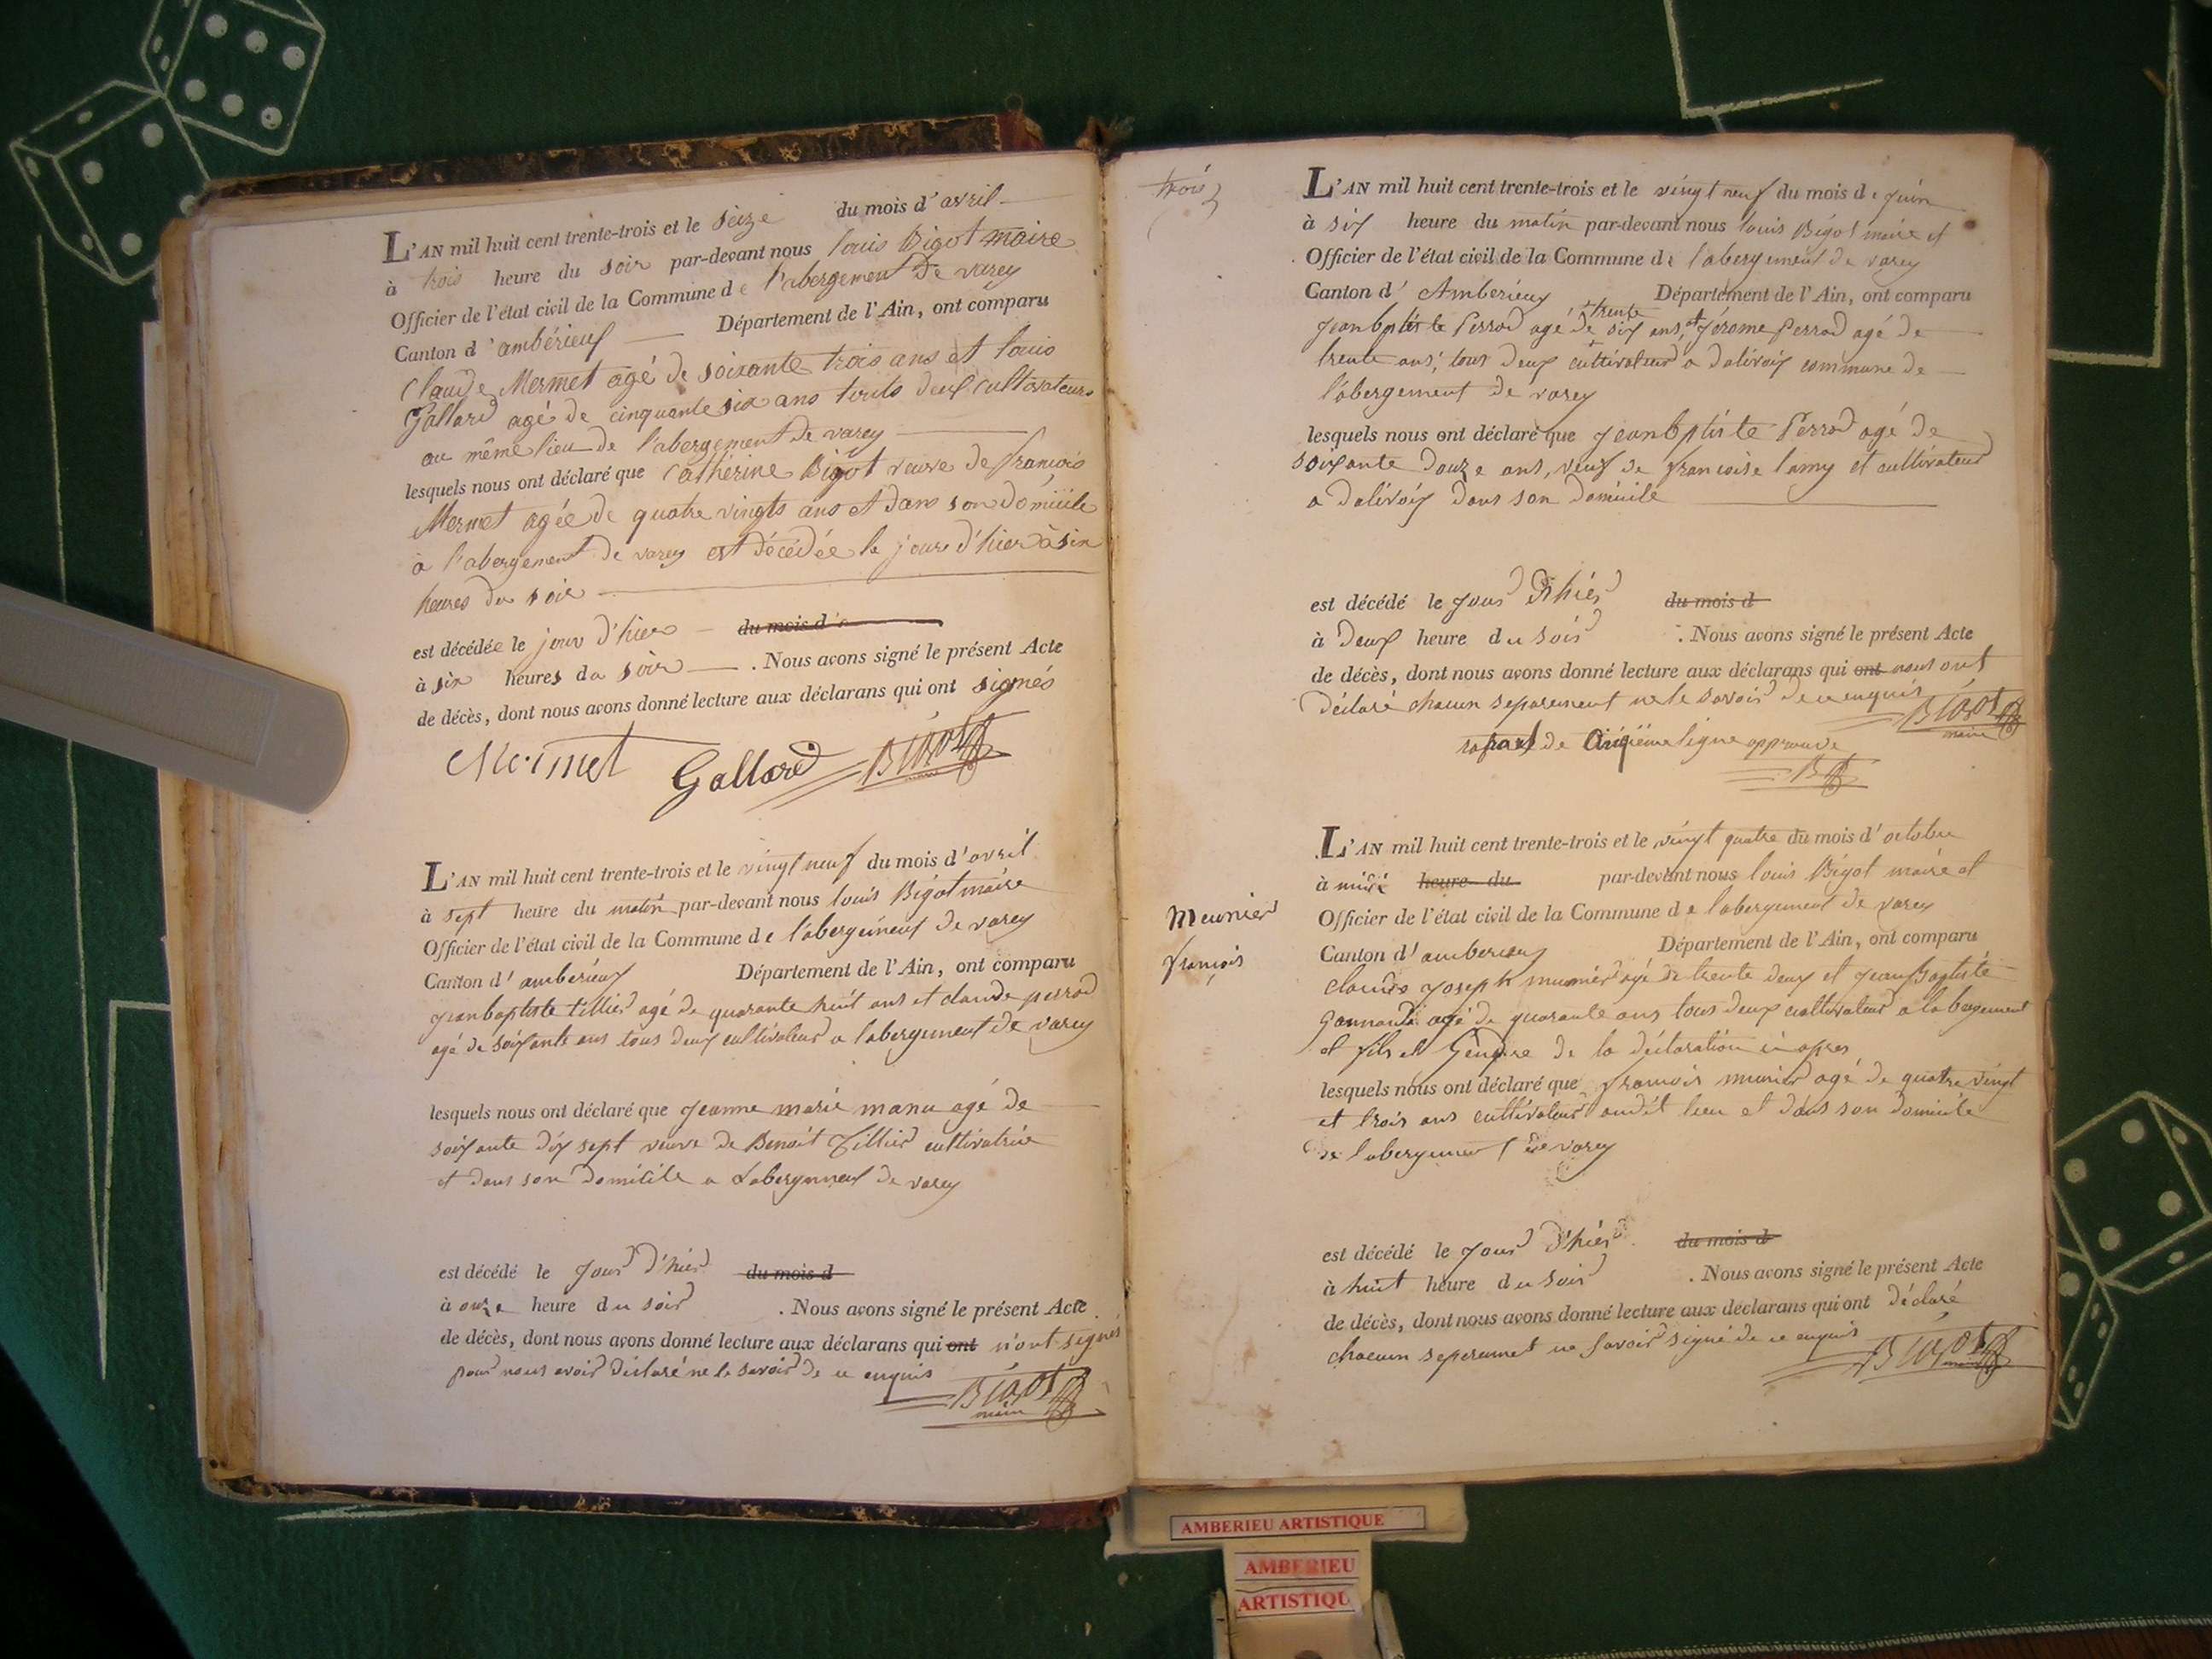 L'AN mil huit cent trente-trois et le seize du mois d'avril
à trois heure du soir par-devant nous louis Bigot maire
Officier de l'état civil de la Commune de l'abergement de varey
Canton d'ambérieux Département de l'Ain, ont comparu
Claude Mermet agé de soixante trois ans et louis
Gallard agé de cinquante six ans touts deux cultivateurs
au même lieu de l'abergement de varey
lesquels nous ont déclaré que Cathérine Bigot veuve de françois
Mermet agée de quatre vingts ans et dans son domicile
a l'abergement de varey est décédée le jour d'hier à six
heures du soir
est décédée le jour d'hier du mois d
à six heures du soir . Nous avons signé le présent Acte
de décès, dont nous avons donné lecture aux déclarans qui ont signés
Mermet Gallard Bigot
maire
L'AN mil huit cent trente-trois et le vingt neuf du mois d'avril
à sept heure du matin par-devant nous louis Bigot maire
Officier de l'état civil de la Commune de l'abergement de varey
Canton d'ambérieux Département de l'Ain, ont comparu
jeanbaptiste tillier agé de quarante huit ans et claude perrod
agé de soixante ans tous deux cultivateur a labergement de varey
lesquels nous ont déclaré que jeanne marie manu agé de
soixante dix sept veuve de Benoit Tillier cultivatrice
et dans son domicile a Labergement de varey
est décédé le jour d'hier du mois d
à onze heure du soir . Nous avons signé le présent Acte
de décès, dont nous avons donné lecture aux déclarans qui ont n'ont signés
pour nous avoir déclaré ne le savoir de ce enquis
Bigot
maire
trois
L'AN mil huit cent trente-trois et le vingt neuf du mois de juin
à six heure du matin par-devant nous louis Bigot maire et
Officier de l'état civil de la Commune de l'abergement de varey
Canton d'Amberieux Département de l'Ain, ont comparu
trente
jeanbptiste Perrod agé de six ans, et jérome Perrod agé de
trente ans, tous deux cultivateur a dalivoix commune de
l'abergement de varey
lesquels nous ont déclaré que jeanbptiste Perrod agé de
soixante douze ans, veuf de francoise lamy et cultivateur
a dalivoix dans son domicile
est décédé le jour d'hier du mois d
à deux heure du soir . Nous avons signé le présent Acte
de décès, dont nous avons donné lecture aux déclarans qui ont nous ont
déclaré chacun separement ne le savoir de ce enquis Bigot
maire
de ligne approuvé
L'AN mil huit cent trente-trois et le vingt quatre du mois d'octobre
à midi heure du par-devant nous louis Bigot maire et
Officier de l'état civil de la Commune de labergement de varey
Canton d'amberieux Département de l'Ain, ont comparu
Meunier
françois
claude joseph munier agé de trente deux et jean Baptiste
agé de quarante ans tous deux cultivateur a labergement
et fils et Gendre de la déclaration ci apres
lesquels nous ont déclaré que francois munier agé de quatre vingt
et trois ans cultivateur audit lieu et dans son domicile
de labergement de varey
est décédé le jour d'hier du mois d
à huit heure du soir . Nous avons signé le présent Acte
de décès, dont nous avons donné lecture aux déclarans qui ont déclaré
chacun séperement ne savoir signé de ce enquis Bigot
maire
AMBERIEU ARTISTIQUE
AMBERIEU
ARTISTIQU